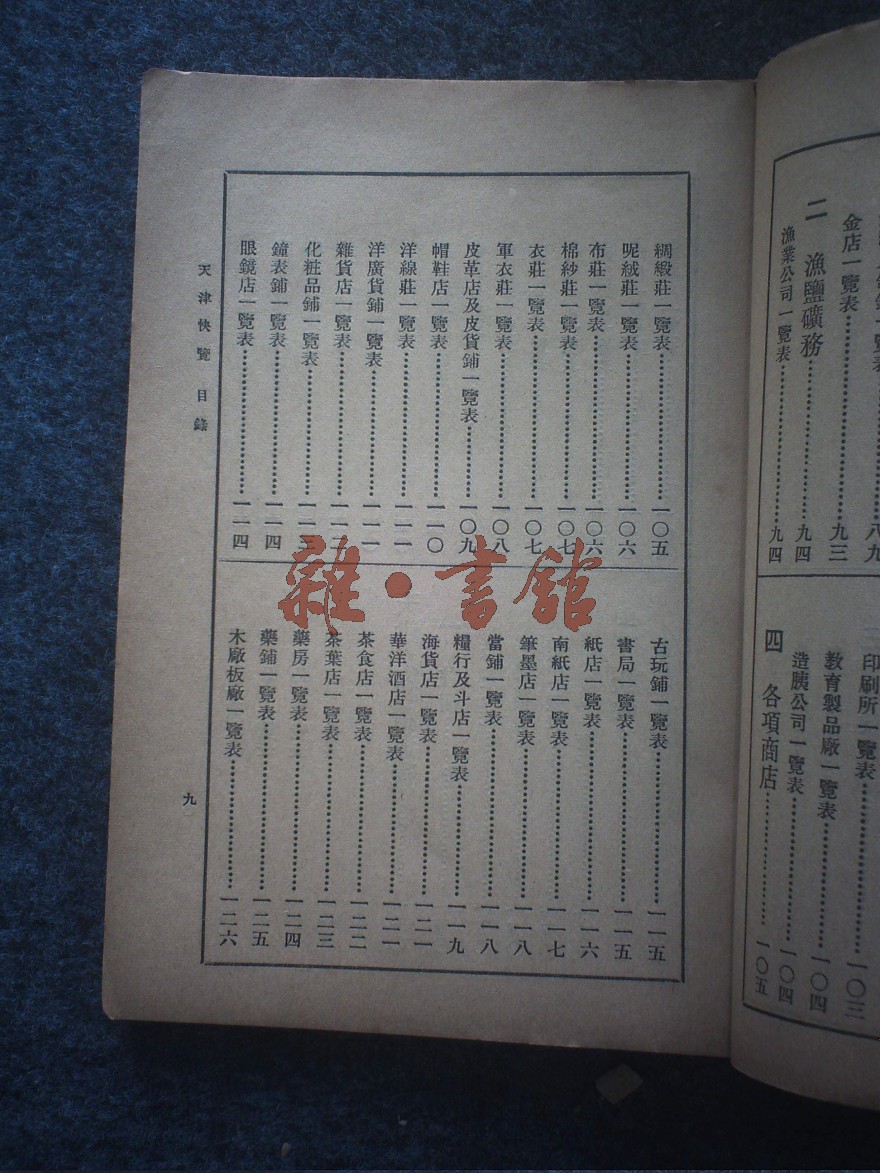 一覽表……八九
金店一覽表……九三
二 漁鹽礦務……九四
漁業公司一覽表……九四
印刷所一覽表……一〇三
教育製品廠一覽表……一〇四
造胰公司一覽表……一〇四
四 各項商店……一〇五
綢緞莊一覽表……一〇五
呢絨莊一覽表……一〇六
布莊一覽表……一〇六
棉紗莊一覽表……一〇七
衣莊一覽表……一〇七
軍衣莊一覽表……一〇八
皮革店及皮貨鋪一覽表……一〇九
帽鞋店一覽表……一一〇
洋線莊一覽表……一一一
洋廣貨鋪一覽表……一一一
雜貨店一覽表……一一
化粧品鋪一覽表……一一三
鐘表鋪一覽表……一一四
眼鏡店一覽表……一一四
古玩鋪一覽表……一一五
書局一覽表……一一五
紙店一覽表……一一六
南紙店一覽表……一一七
筆墨店一覽表……一一八
當鋪一覽表……一一八
糧行及斗店一覽表……一一九
海貨店一覽表……一二一
華洋酒店一覽表……一二一
茶食店一覽表……一二二
茶葉店一覽表……一二三
藥房一覽表……一二四
藥鋪一覽表……一二五
木廠板廠一覽表……一二六
天津快覽 目錄
九
雜·書館